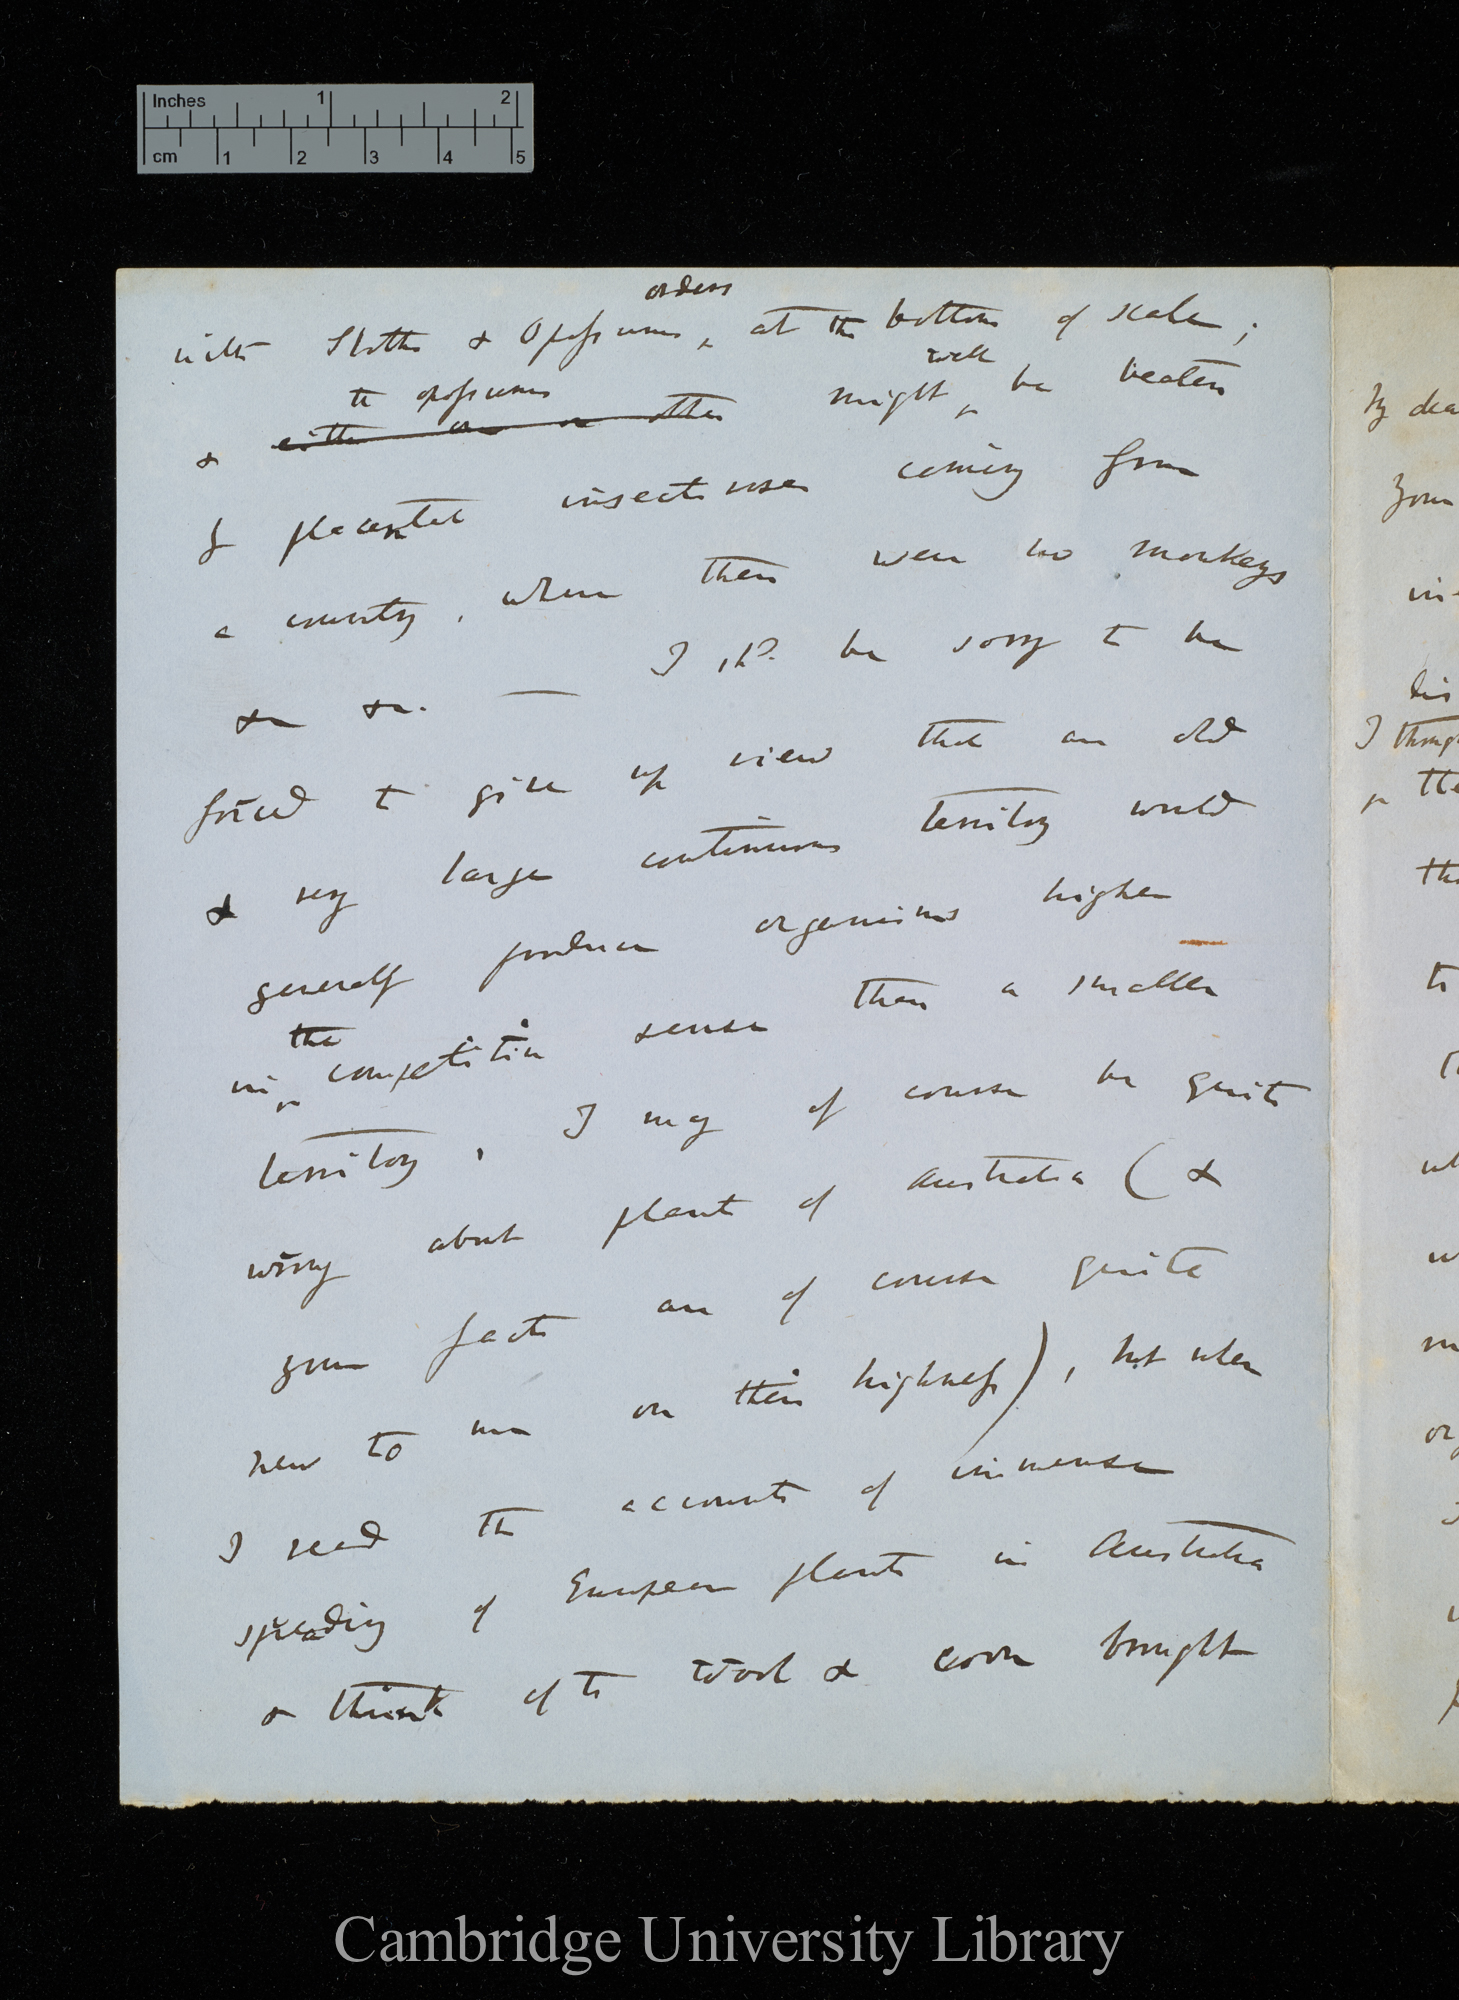 Inches 1 2
cm 1 2 3 4 5
orders
with Sloths & Opossums, at the bottom of scale;
the opossums well
& either one or other might be beaten
by placental insectivores coming from
a country, where there were no monkeys
&c &c. — I shd. be sorry to be
forced to give up view that an old
& very large continuous territory would
generally produce organisms higher
the
in competitive sense than a smaller
territory. I may of course be quite
wrong about plants of Australia (&
your facts are of course quite
new to me on their highness), but when
I read the accounts of immense
spreading of European plants in Australia
& think of the wool & corn brought
My dea
your
in
his
I thoug
the
tha
to
or
Cambridge University Library